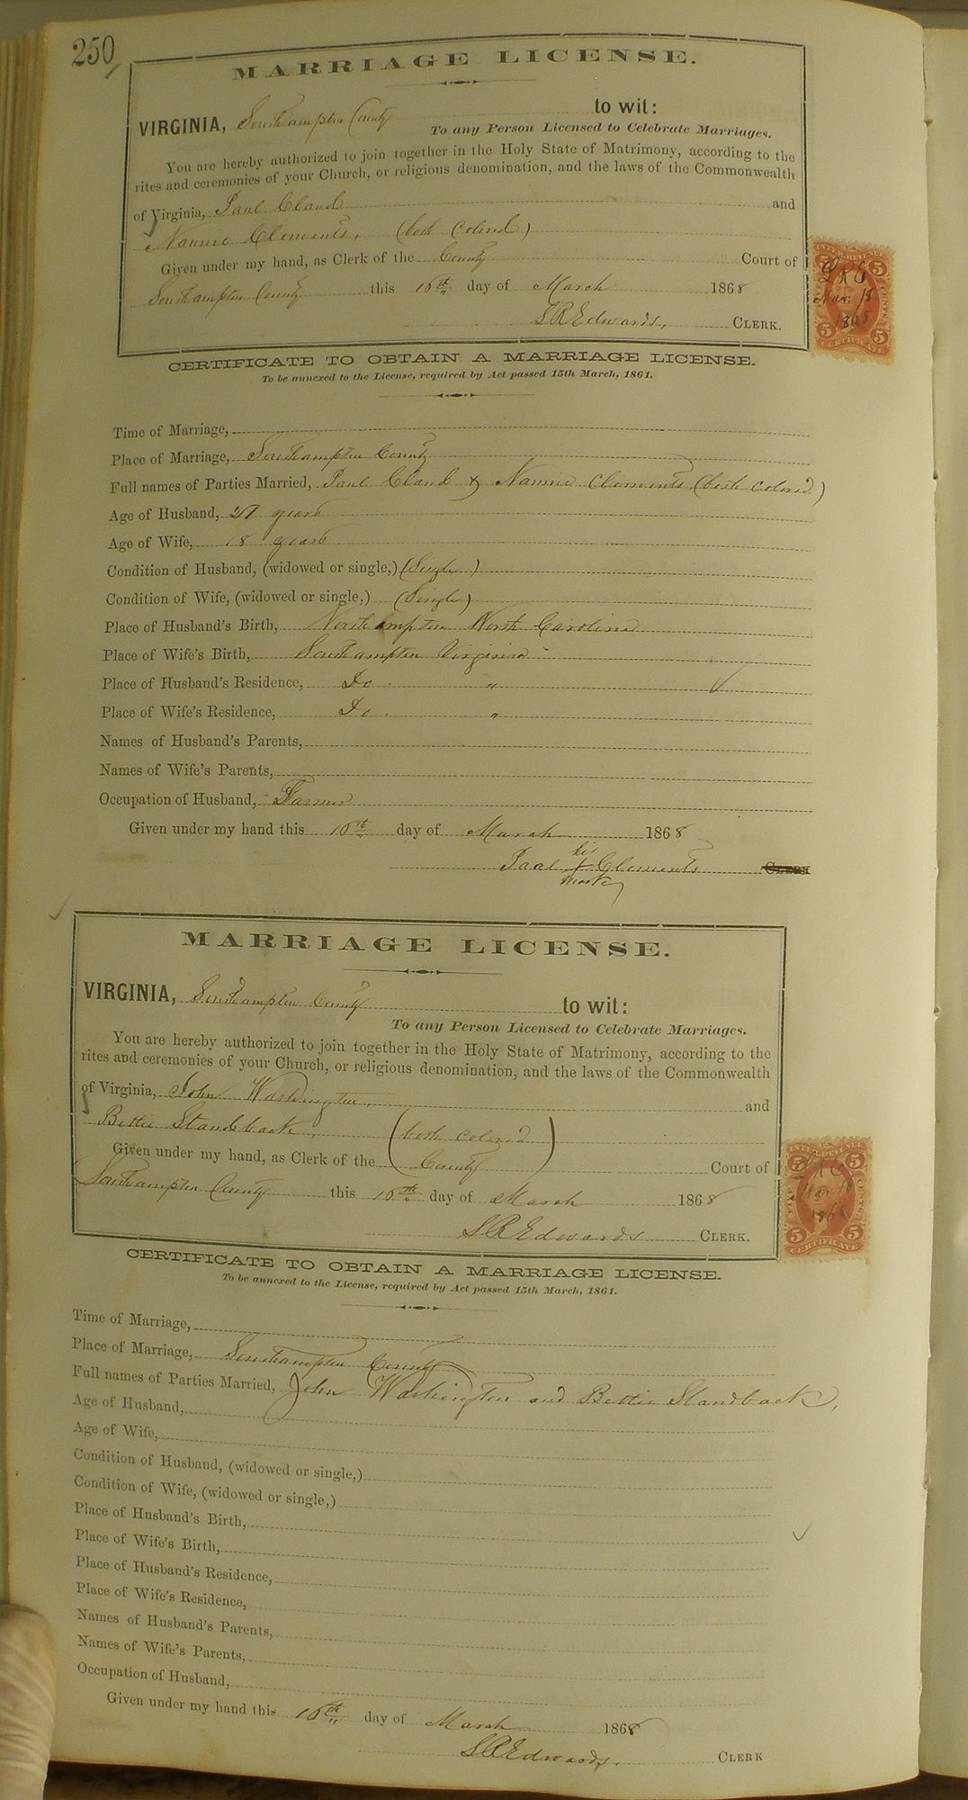 250
MARRIAGE LICENSE.
VIRGINIA, Southampton County to wit:
To any Person Licensed to Celebrate Marriages.
You are hereby authorized to join together in the Holy State of Matrimony, according to the
rites and ceremonies of your Church, or religious denomination, and the laws of the Commonwealth
of Virginia, Paul Claud and
Nannie Clements, (both colored)
Given under my hand, as Clerk of the County Court of
Southampton County this day of March 1868
L R Edwards, CLERK.
CERTIFICATE TO OBTAIN A MARRIAGE LICENSE.
To be annexed to the License, required by Act passed 15th March, 1861.
Time of Marriage,
Place of Marriage, Southampton County
Full names of Parties Married, Paul Claud & Nannie Clements (both colored)
Age of Husband, years
Age of Wife, 18 years
Condition of Husband, (widowed or single,) (Single)
Condition of Wife, (widowed or single,) (Single)
Place of Husband's Birth, Northampton North Carolina
Place of Wife's Birth, Southampton Virginia
Place of Husband's Residence, Do "
Place of Wife's Residence, Do "
Names of Husband's Parents,
Names of Wife's Parents,
Occupation of Husband, Farmer
Given under my hand this day of March 1868
Paul his X mark Clements CLERK
MARRIAGE LICENSE.
VIRGINIA, Southampton County to wit:
To any Person Licensed to Celebrate Marriages.
You are hereby authorized to join together in the Holy State of Matrimony, according to the
rites and ceremonies of your Church, or religious denomination, and the laws of the Commonwealth
of Virginia, John Washington, and
Bettie Standback, (both colored)
Given under my hand, as Clerk of the County Court of
Southampton County this day of March 1868
L R Edwards CLERK.
CERTIFICATE TO OBTAIN A MARRIAGE LICENSE.
To be annexed to the License, required by Act passed 15th March, 1861.
Time of Marriage,
Place of Marriage, Southampton County
Full names of Parties Married, John Washington and Bettie Standback,
Age of Husband,
Age of Wife,
Condition of Husband, (widowed or single,)
Condition of Wife, (widowed or single,)
Place of Husband's Birth,
Place of Wife's Birth,
Place of Husband's Residence,
Place of Wife's Residence,
Names of Husband's Parents,
Names of Wife's Parents,
Occupation of Husband,
Given under my hand this day of March 1868
L R Edwards, CLERK